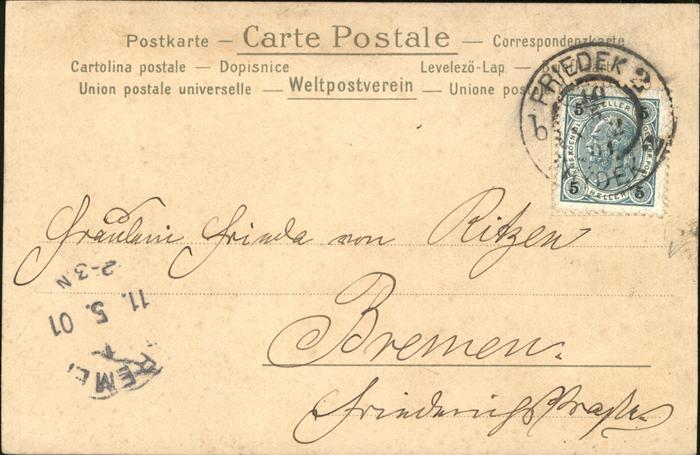 Postkarte — Carte Postale — Correspondenzkarte
Cartolina postale — Dopisnice Levelező-Lap —
Union postale universelle — Weltpostverein — Unione
FRIEDEK 2
10
b
5 5
HELLER
5 5
Fräulein Frieda von Ritzen
Bremen.
2-3 N
11. 5. 01